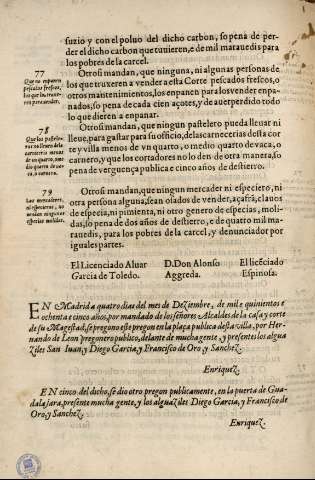 suzio y con el poluo del dicho carbon, so pena de per-
der el dicho carbon que tuuieren, e de mil marauedis para
los pobres de la carcel.
77
Que no empanen
pescados frescos,
los que los traxeren
para vender.
Otrosi mandan, que ninguna, ni algunas personas de
los que truxeren a vender a esta Corte pescados frescos, o
otros mantenimientos, los enpanen para los vender enpa-
nados, so pena de cada cien açotes, y de auer perdido todo
lo que dieren a enpanar.
78
Que los pastele-
ros no lleuen de la
carniceria menos
de un quarto, o me-
dio quarto de va-
ca, o carnero.
Otrosi mandan, que ningun pastelero pueda lleuar ni
lleue, para gastar para su officio, de las carnecerias desta cor
te y villa menos de vn quarto, o medio quarto de vaca, o
carnero, y que los cortadores no lo den de otra manera, so
pena de verguença publica e cinco años de destierro.
79
Que mercaderes,
ni especieros, no
vendan ningunas
especias molidas.
Otrosi mandan, que ningun mercader ni especiero, ni
otra persona alguna, sean osados de vender, açafrã, clauos
de especia, ni pimienta, ni otro genero de especias, moli-
das, so pena de dos años de destierro, e de quatro mil ma-
rauedis, para los pobres de la carcel, y denunciador por
iguales partes.
El Licenciado Aluar
Garcia de Toledo.
D. Don Alonso
Aggreda.
El licẽciado
Espinosa.
EN Madrid a quatro dias del mes de Deziembre, de mil e quinientos e
ochenta e cinco años, por mandado de los señores Alcaldes de la casa y corte
de su Magestad, se pregono este pregon en la plaça publica desta villa, por Her-
nando de Leon pregonero publico, delante de mucha gente, y presentes los algua
ziles San Iuan, y Diego Garcia, y Francisco de Oro, y Sanchez.
Enriquez.
EN cinco del dicho, se dio otro pregon publicamente, en la puerta de Gua-
dalajara, presente mucha gente, y los alguaziles Diego Garcia, y Francisco de
Oro, y Sanchez.
Enriquez.